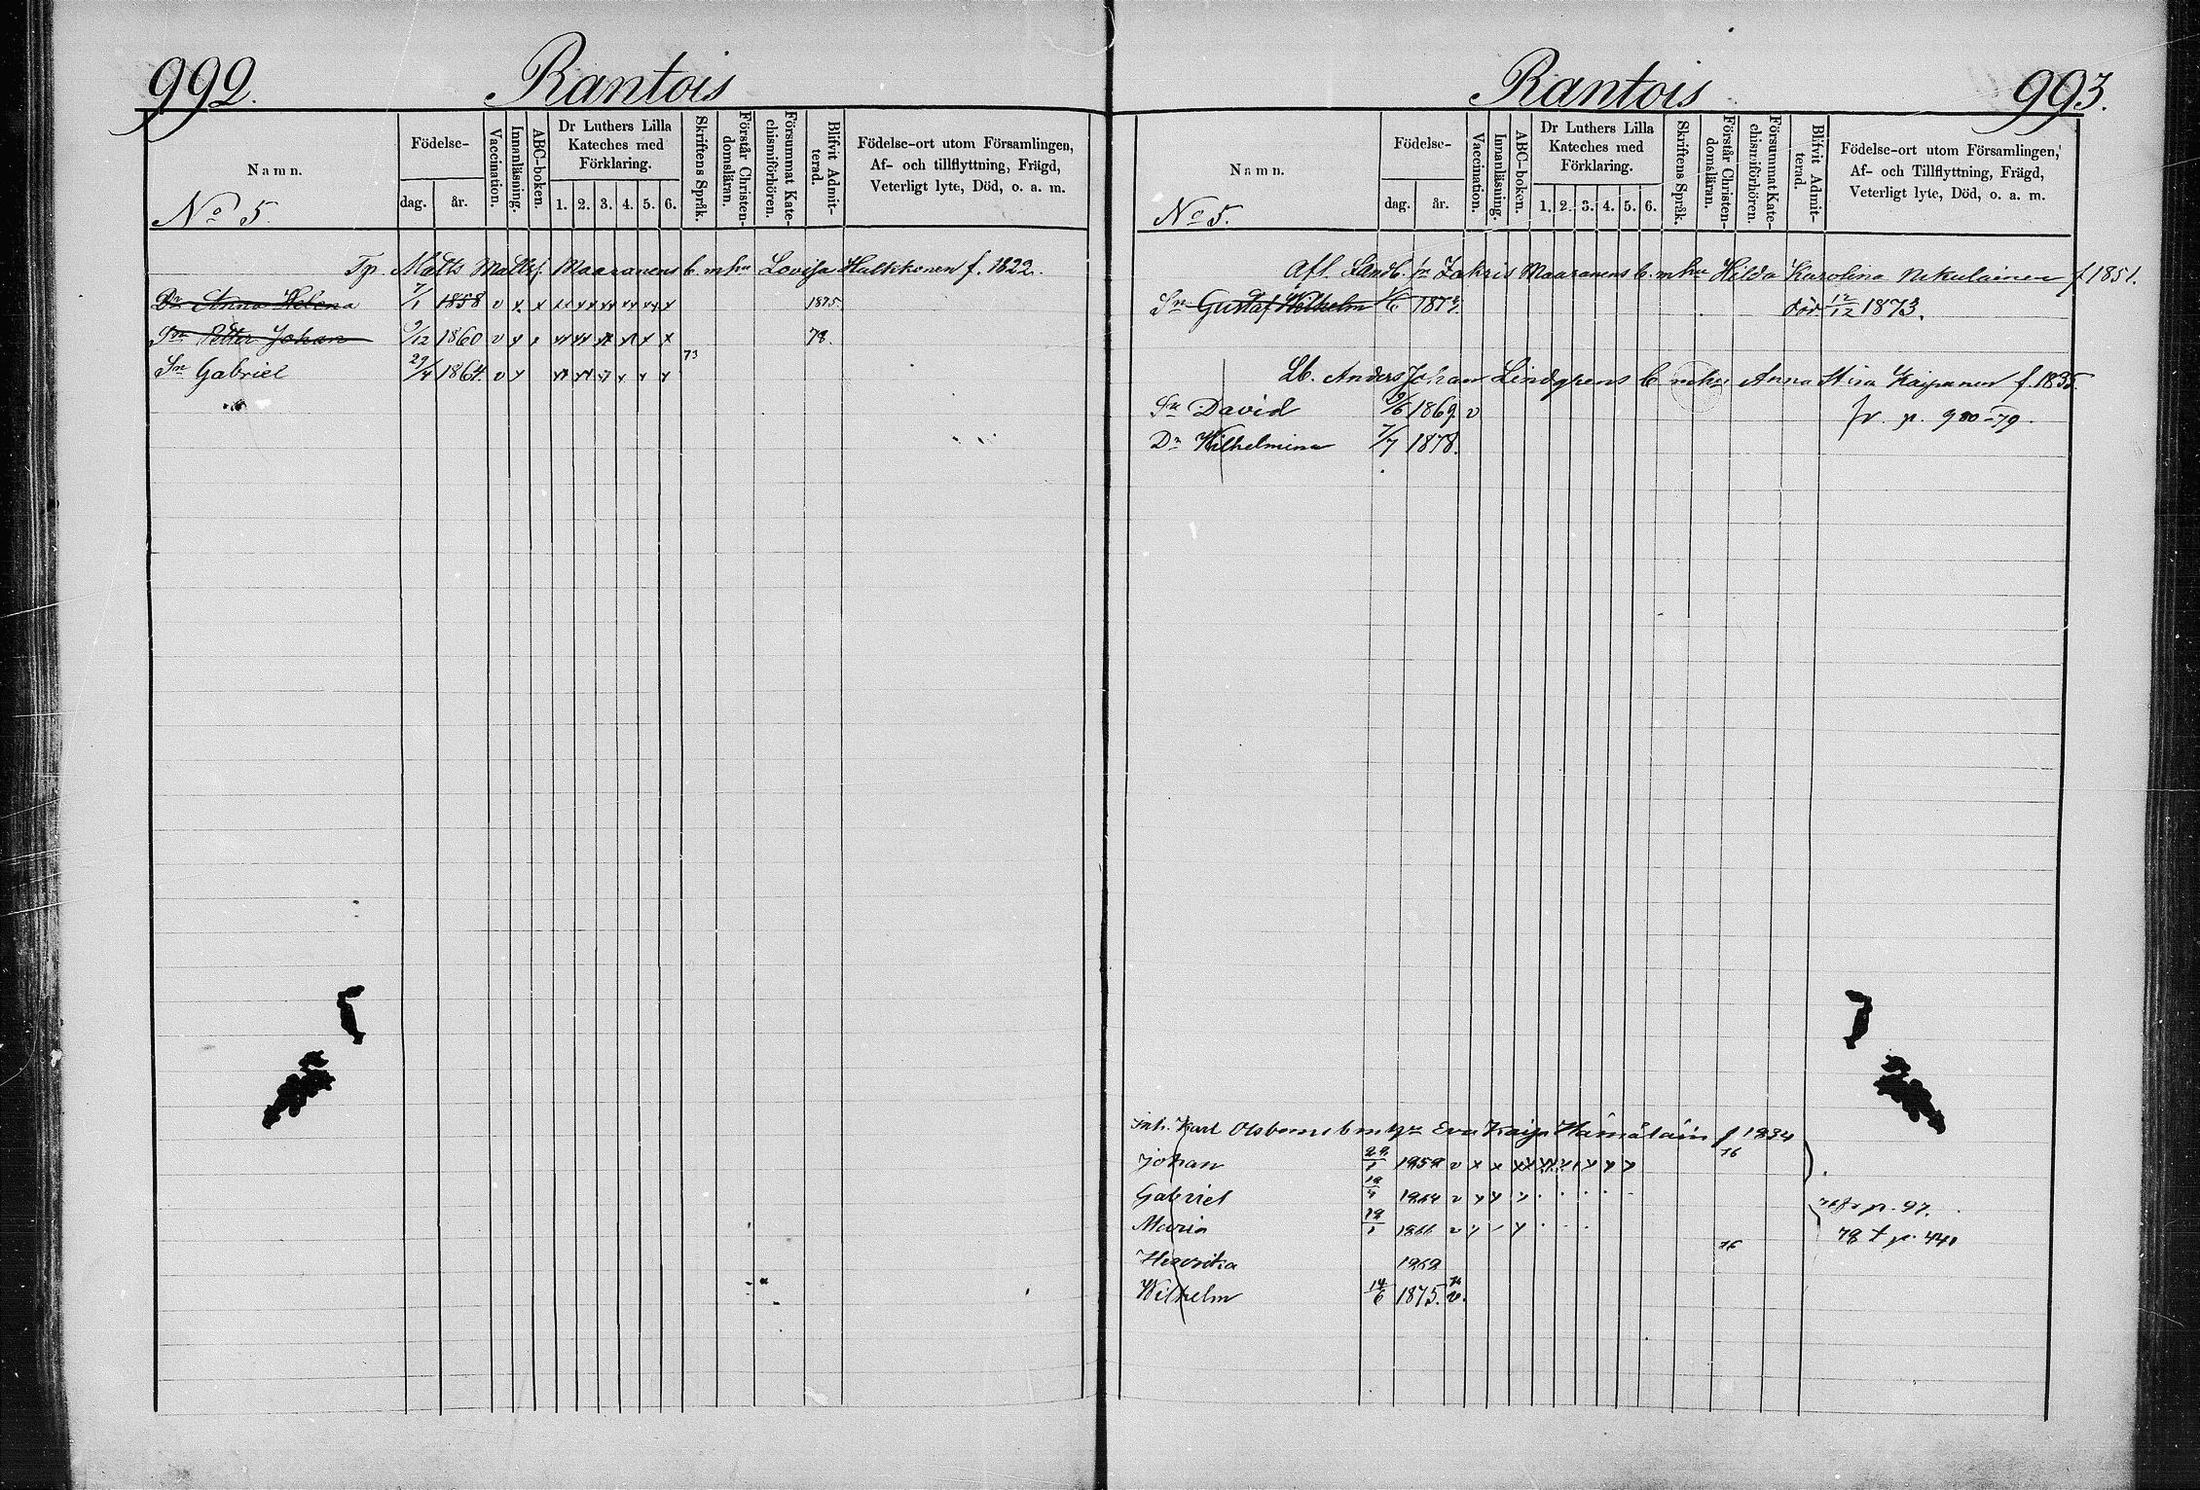 992.
Rantois
Namn.
Födelse-
dag.
år.
Vaccination.
Innanläsning.
ABC-boken.
Dr Luthers Lilla
Kateches med
Förklaring.
1. 2. 3. 4. 5. 6.
Skriftens Språk.
Förstår Christen-
domsläran.
Försummat Kate-
chismiförhören.
Blifvit Admit-
terad.
Födelse-ort utom Församlingen,
Af- och tillflyttning, Frägd,
Veterligt lyte, Död, o. a. m.
No 5.
Tp. Matts Mattsf. Maaranens b. m hu Lovisa Hulkkonen f. 1822.
Dr Anna Helena 7/1 1858 v x x xx xx xx xx xx x 1875.
Sn Petter Johan 9/12 1860 v x x xx xx xx x x x 78.
Sn Gabriel 29/4 1864. v x xx xx x x x x 73
Rantois
993.
Namn.
Födelse-
dag.
år.
Vaccination.
Innanläsning.
ABC-boken.
Dr Luthers Lilla
Kateches med
Förklaring.
1. 2. 3. 4. 5. 6.
Skriftens Språk.
Förstår Christen-
domsläran.
Försummat Kate-
chismiförhören.
Blifvit Admit-
terad.
Födelse-ort utom Församlingen,
Af- och Tillflyttning, Frägd,
Veterligt lyte, Död, o. a. m.
No 5.
Afl. Landb. Zakris Maaranens b. m hu Hilda Karolina Nikulainen f 1851.
Sn Gustaf Wilhelm 1/6 1873. död 12/12 1873.
Lb. Anders Johan Lindgrens b m hu Anna Stina Kaipanen f. 1835
Sn David 29/6 1869 v fr. p. 980-79.
Dr Wilhelmina 7/7 1878.
Inh. Karl Olsboms b m hu Eva Kaisa Hämäläin f 1834
Johan 22/1 1858 v x x xx xx x x x x 76
Gabriel 19/4 1864 v x x x
Maria 19/1 1866 v x x
78 t p. 440
Henrika 1868 76
Wilhelm 14/6 1875. v.